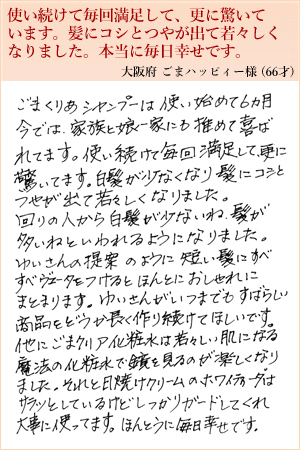 使い続けて毎回満足して、更に驚いて
います。髪にコシとつやが出て若々しく
なりました。本当に毎日幸せです。
大阪府 ごまハッピィー様 (66才)
ごまくりぁ シャンプーは 使い始めて6カ月
今では、家族と娘一家にも推めて喜ば
れてます。使い続けて毎回満足して、更に
驚いてます。白髪が少なくなり髪にコシと
つやが出て若々しくなりました。
回りの人から白髪が少ないね、髪が
多いねといわれるようになりました。
ゆいさんの提案のように短い髪にすべ
すべヴェータをつけるとほんとにおしゃれに
まとまります。ゆいさんがいつまでもすばらしい
商品をどうか長く作り続けてほしいです。
他にごまクリア化粧水は若々しい肌になる
魔法の化粧水で鏡を見るのが楽しくなり
ました。それと日焼けクリームのホワイティーヌは
サラッとしているけどしっかりガードしてくれ
大事に使ってます。ほんとうに毎日幸せです。